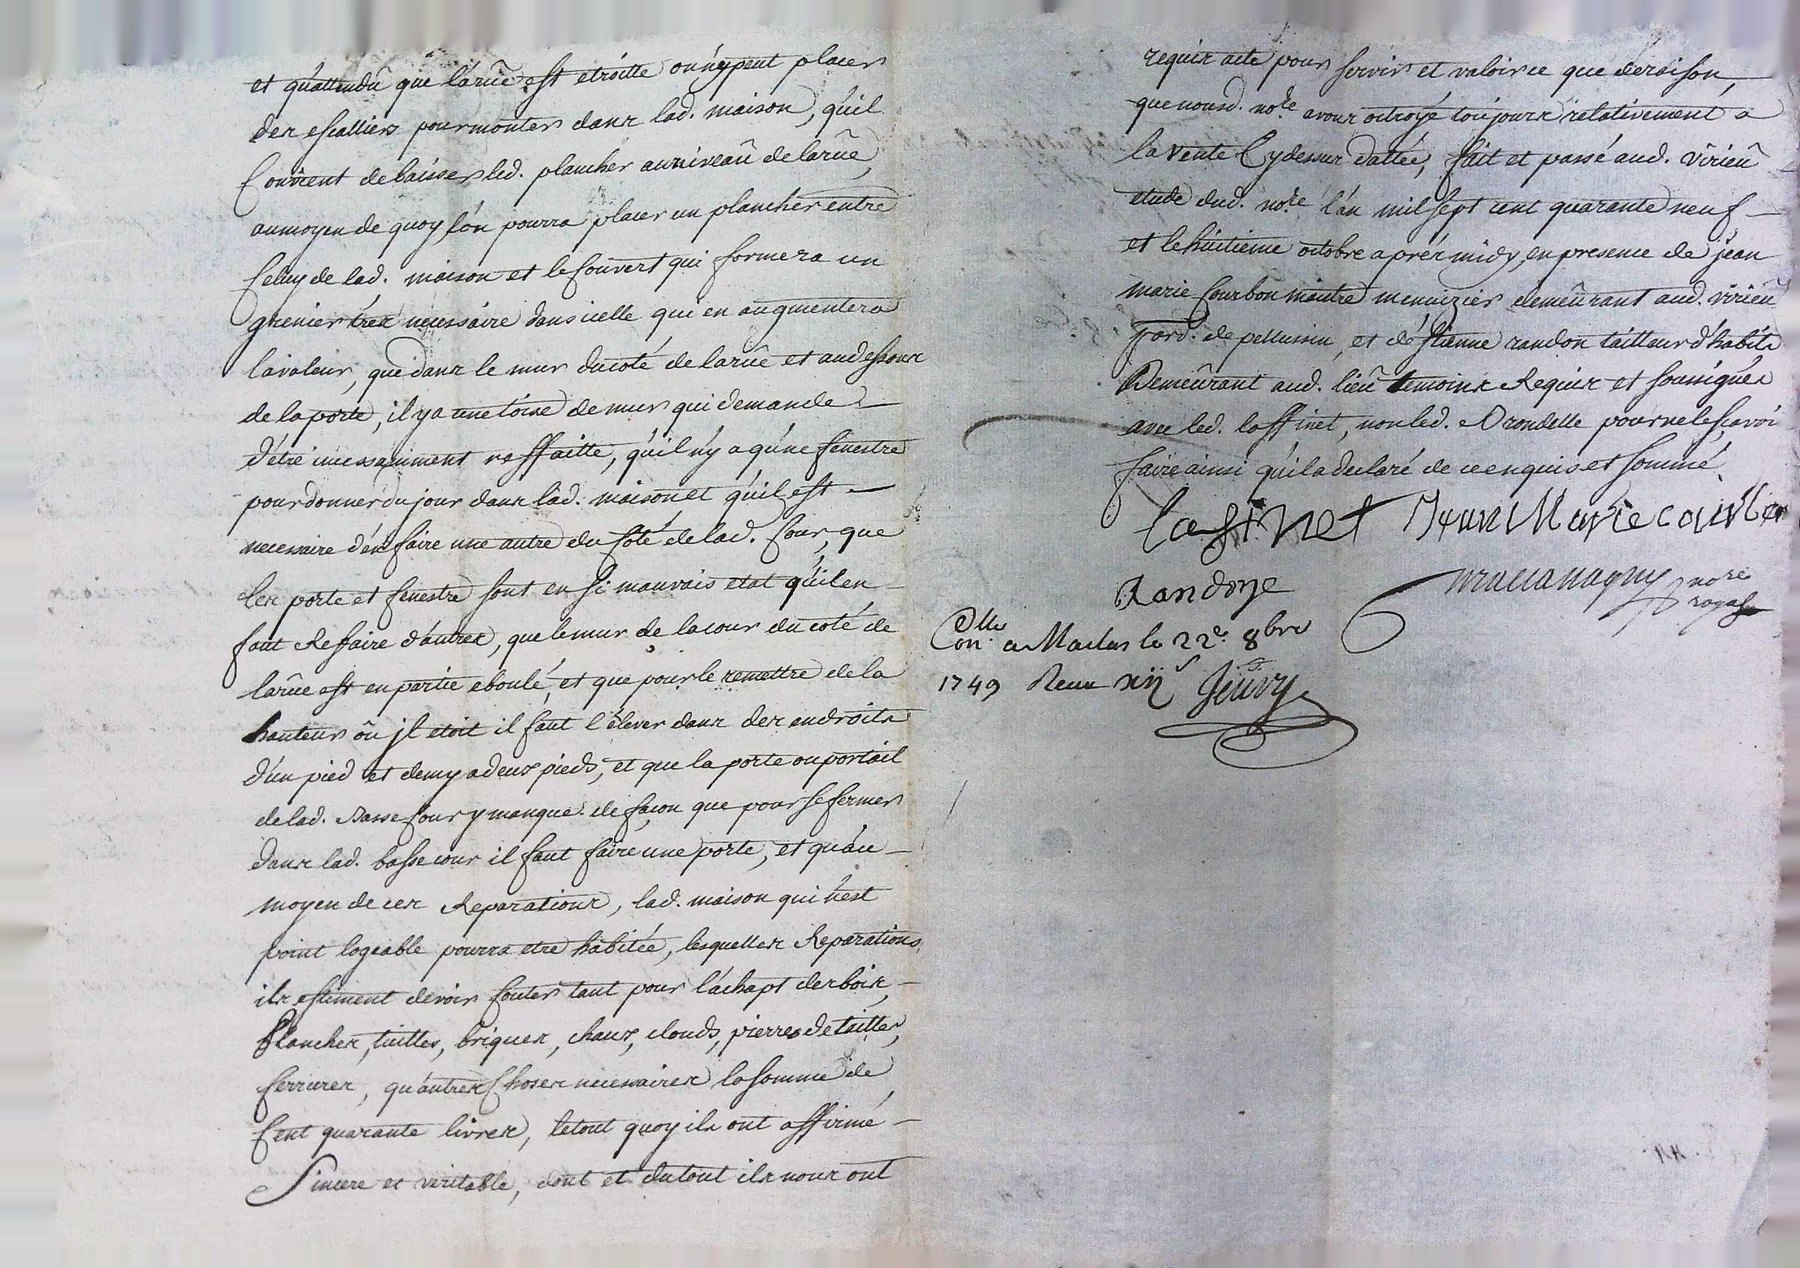 et qu'attendû que la rûe est etroitte on n'y peut placer
des escalliers pour monter dans lad. maison, qu'il
Convient de baisser led. plancher au niveaû de la rûe,
au moyen de quoy l'on pourra placer un plancher entre
Celuy de lad. maison et le Couvert qui formera un
grenier trés necessaire dans icelle qui en augmentera
la valeur, que dans le mur du coté de la rûe et au dessous
de la porte, il y a une toise de mur qui demande
d'étre incessamment reffaitte, qu'il n'y a qu'une fenestre
pour donner du jour dans lad. maison et qu'il est
necessaire d'en faire une autre du Côté de lad. Cour, que
les porte et fenestre sont en si mauvais etat qu'il en
faut Reffaire d'autres, que le mur de la cour du coté de
la rûe est en partie eboulé, et que pour le remettre de la
hauteur oû il etoit il faut l'élever dans des endroits
d'un pied et demy a deux pieds, et que la porte ou portail
de lad. Basse Cour y manque de façon que pour se fermer
dans lad. basse cour il faut faire une porte, et qu'au
moyen de ces Reparations, lad. maison qui n'est
point logeable pourra etre habitée, lesquelles Reparations
ils estiment devoir Couter tant pour l'achapt des bois,
Planches, tuilles, briques, chaux, clouds, pierres de tailles,
ferrures, qu'autres Choses necessaires la somme de
Cent quarante livres, le tout quoy ils ont affirmé
Sincere et veritable, dont et du tout ils nous ont
requis acte pour servir et valoir ce que de raison,
que nousd. nore. avons octroyé toujours relativement a
la vente Cy dessus dattée, fait et passé aud. virieû
etude dud. nore. l'an mil sept cent quarante neuf
et le huitieme octobre aprés midy, en presence de jean
marie Courbon maitre menuizier demeûrant aud. virieû
parr. de pellussin, et d'éstienne randon tailleur d'habits
Demeûrant aud. lieû temoins Requis et soussignés
avec led. laffinet, non led. Drondelle pour ne le sçavoir
faire ainsi qu'il a declaré de ce enquis et sommé
lafinet Jean Marie courbon
Randon
nore royal
Collé
Con. a Maclas le 22e. 8bre
1749 Receu xijs